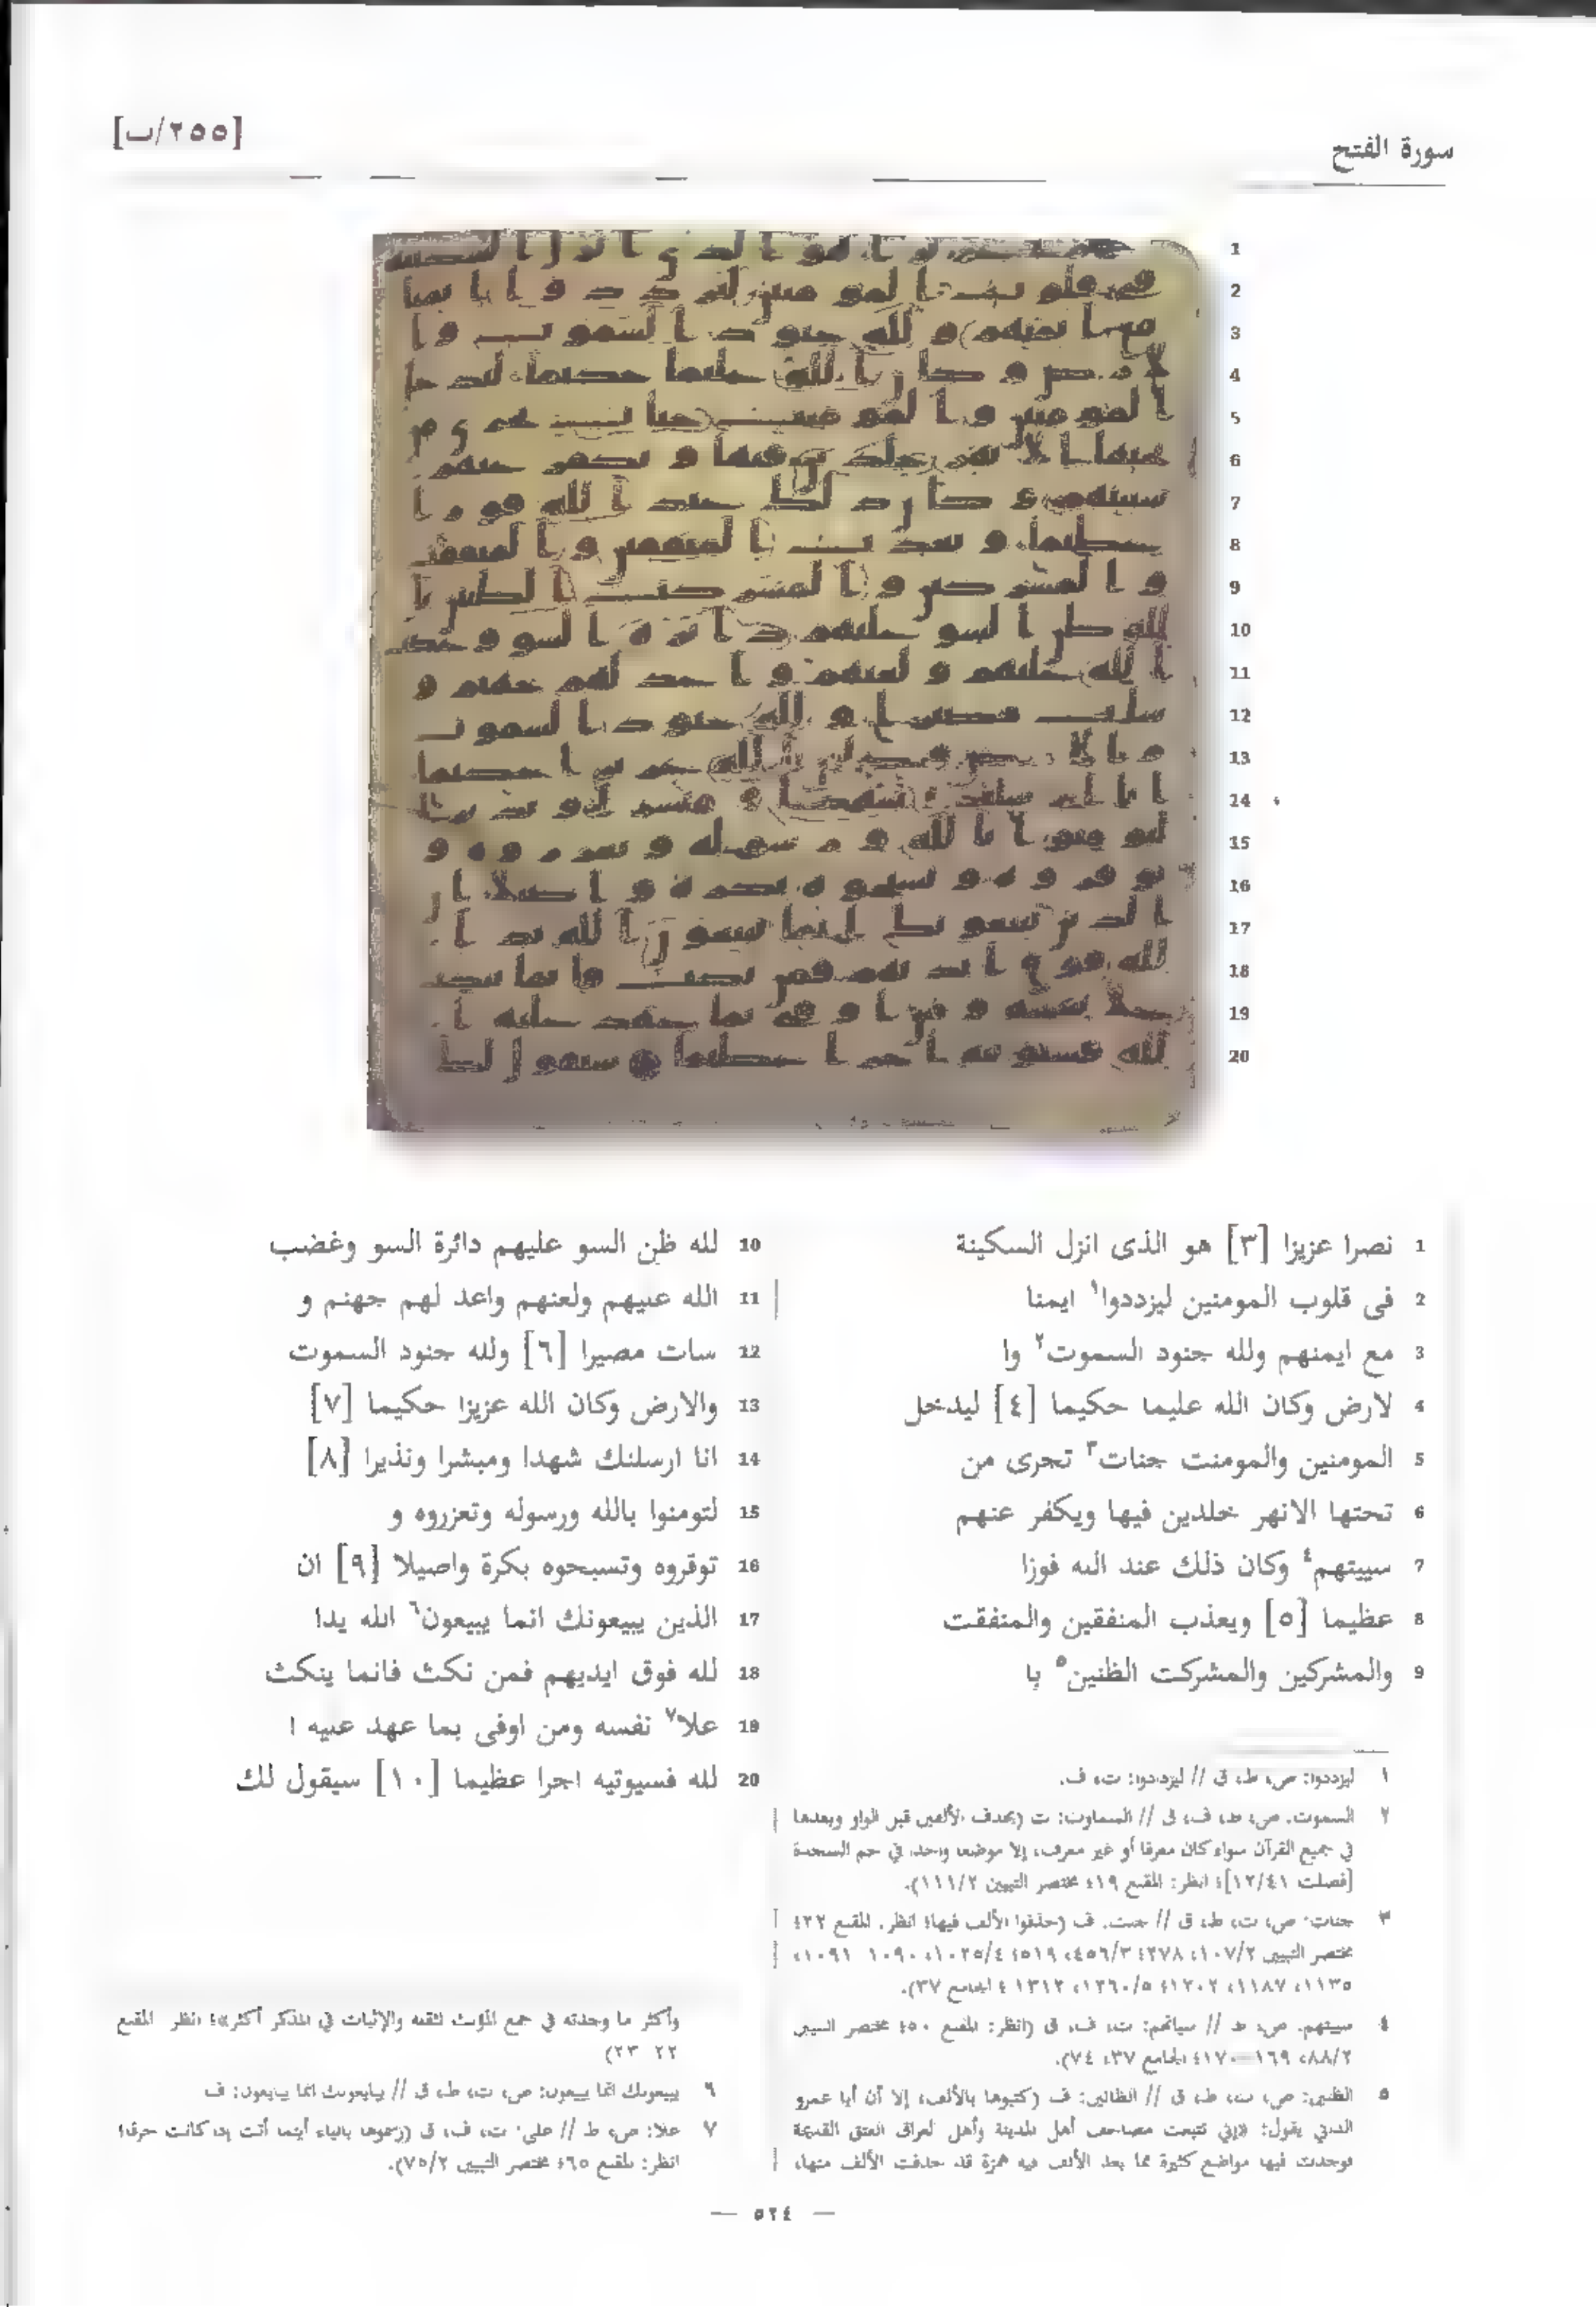 سورة الفتح
[٢٥٥/ب]
1
2
3
4
5
6
7
8
9
10
11
12
13
14
15
16
17
18
19
20
1 نصرا عزيزا [٣] هو الذى انزل السكينة
2 فى قلوب المومنين ليزددوا١ ايمنا
3 مع ايمنهم ولله جنود السموت٢ وا
4 لارض وكان الله عليما حكيما [٤] ليدخل
5 المومنين والمومنت جنات٣ تجرى من
6 تحتها الانهر خلدين فيها ويكفر عنهم
7 سييتهم٤ وكان ذلك عند الله فوزا
8 عظيما [٥] ويعذب المنفقين والمنفقت
9 والمشركين والمشركت الظنين٥ با
10 لله ظن السو عليهم دائرة السو وغضب
11 الله عليهم ولعنهم واعد لهم جهنم و
12 سات مصيرا [٦] ولله جنود السموت
13 والارض وكان الله عزيزا حكيما [٧]
14 انا ارسلنك شهدا ومبشرا ونذيرا [٨]
15 لتومنوا بالله ورسوله وتعزروه و
16 توقروه وتسبحوه بكرة واصيلا [٩] ان
17 الذين يبيعونك انما يبيعون٦ الله يدا
18 لله فوق ايديهم فمن نكث فانما ينكث
19 علا٧ نفسه ومن اوفى بما عهد عليه ا
20 لله فسيوتيه اجرا عظيما [١٠] سيقول لك
١ ليزددوا: ص، ط، ق // ليزدادوا: ت، ف.
٢ السموت: ص، ط، ف، ق // السماوت: ت (بحذف الألفين قبل الواو وبعدها
في جميع القرآن سواء كان معرفا أو غير معرف، إلا موضعا واحدا في حم السجدة
[فصلت ١٢/٤١]؛ انظر: المقنع ١٩؛ مختصر التبيين ١١١/٢).
٣ جنات: ص، ت، ط، ق // جنت: ف (حذفوا الألف فيها؛ انظر: المقنع ٢٢؛
مختصر التبيين ١٠٧/٢، ٢٧٨؛ ٤٥٦/٣، ٥١٩؛ ١٠٢٥/٤، ١٠٩٠، ١٠٩١،
١١٣٥، ١١٨٧، ١٢٠٢؛ ١٢٦٠/٥، ١٣١٢؛ الجامع ٣٧).
٤ سييتهم: ص، ط // سياتهم: ت، ف، ق (انظر: المقنع ٥٠؛ مختصر التبيين
٨٨/٢، ١٦٩-١٧٠؛ الجامع ٣٧، ٧٤).
٥ الظنين: ص، ت، ط، ق // الظالين: ف (كتبوها بالألف، إلا أن أبا عمرو
الداني يقول: «إني تتبعت مصاحف أهل المدينة وأهل العراق العتق القديمة
فوجدت فيها مواضع كثيرة مما بعد الألف فيه همزة قد حذفت الألف منها،
وأكثر ما وجدته في جمع المؤنث لثقله والإثبات في المذكر أكثر»؛ انظر: المقنع
٢٢-٢٣)
٦ يبيعونك انما يبيعون: ص، ت، ط، ق // يبايعونك انما يبايعون: ف
٧ علا: ص، ط // على: ت، ف، ق (رسموها بالياء أينما أتت إذا كانت حرفا؛
انظر: المقنع ٦٥؛ مختصر التبيين ٧٥/٢).
— ٥٢٤ —